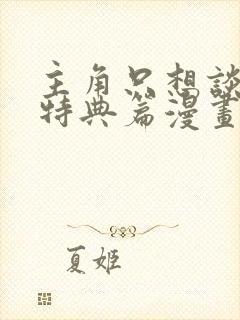 主角只想談
特典篇漫畫
夏姬